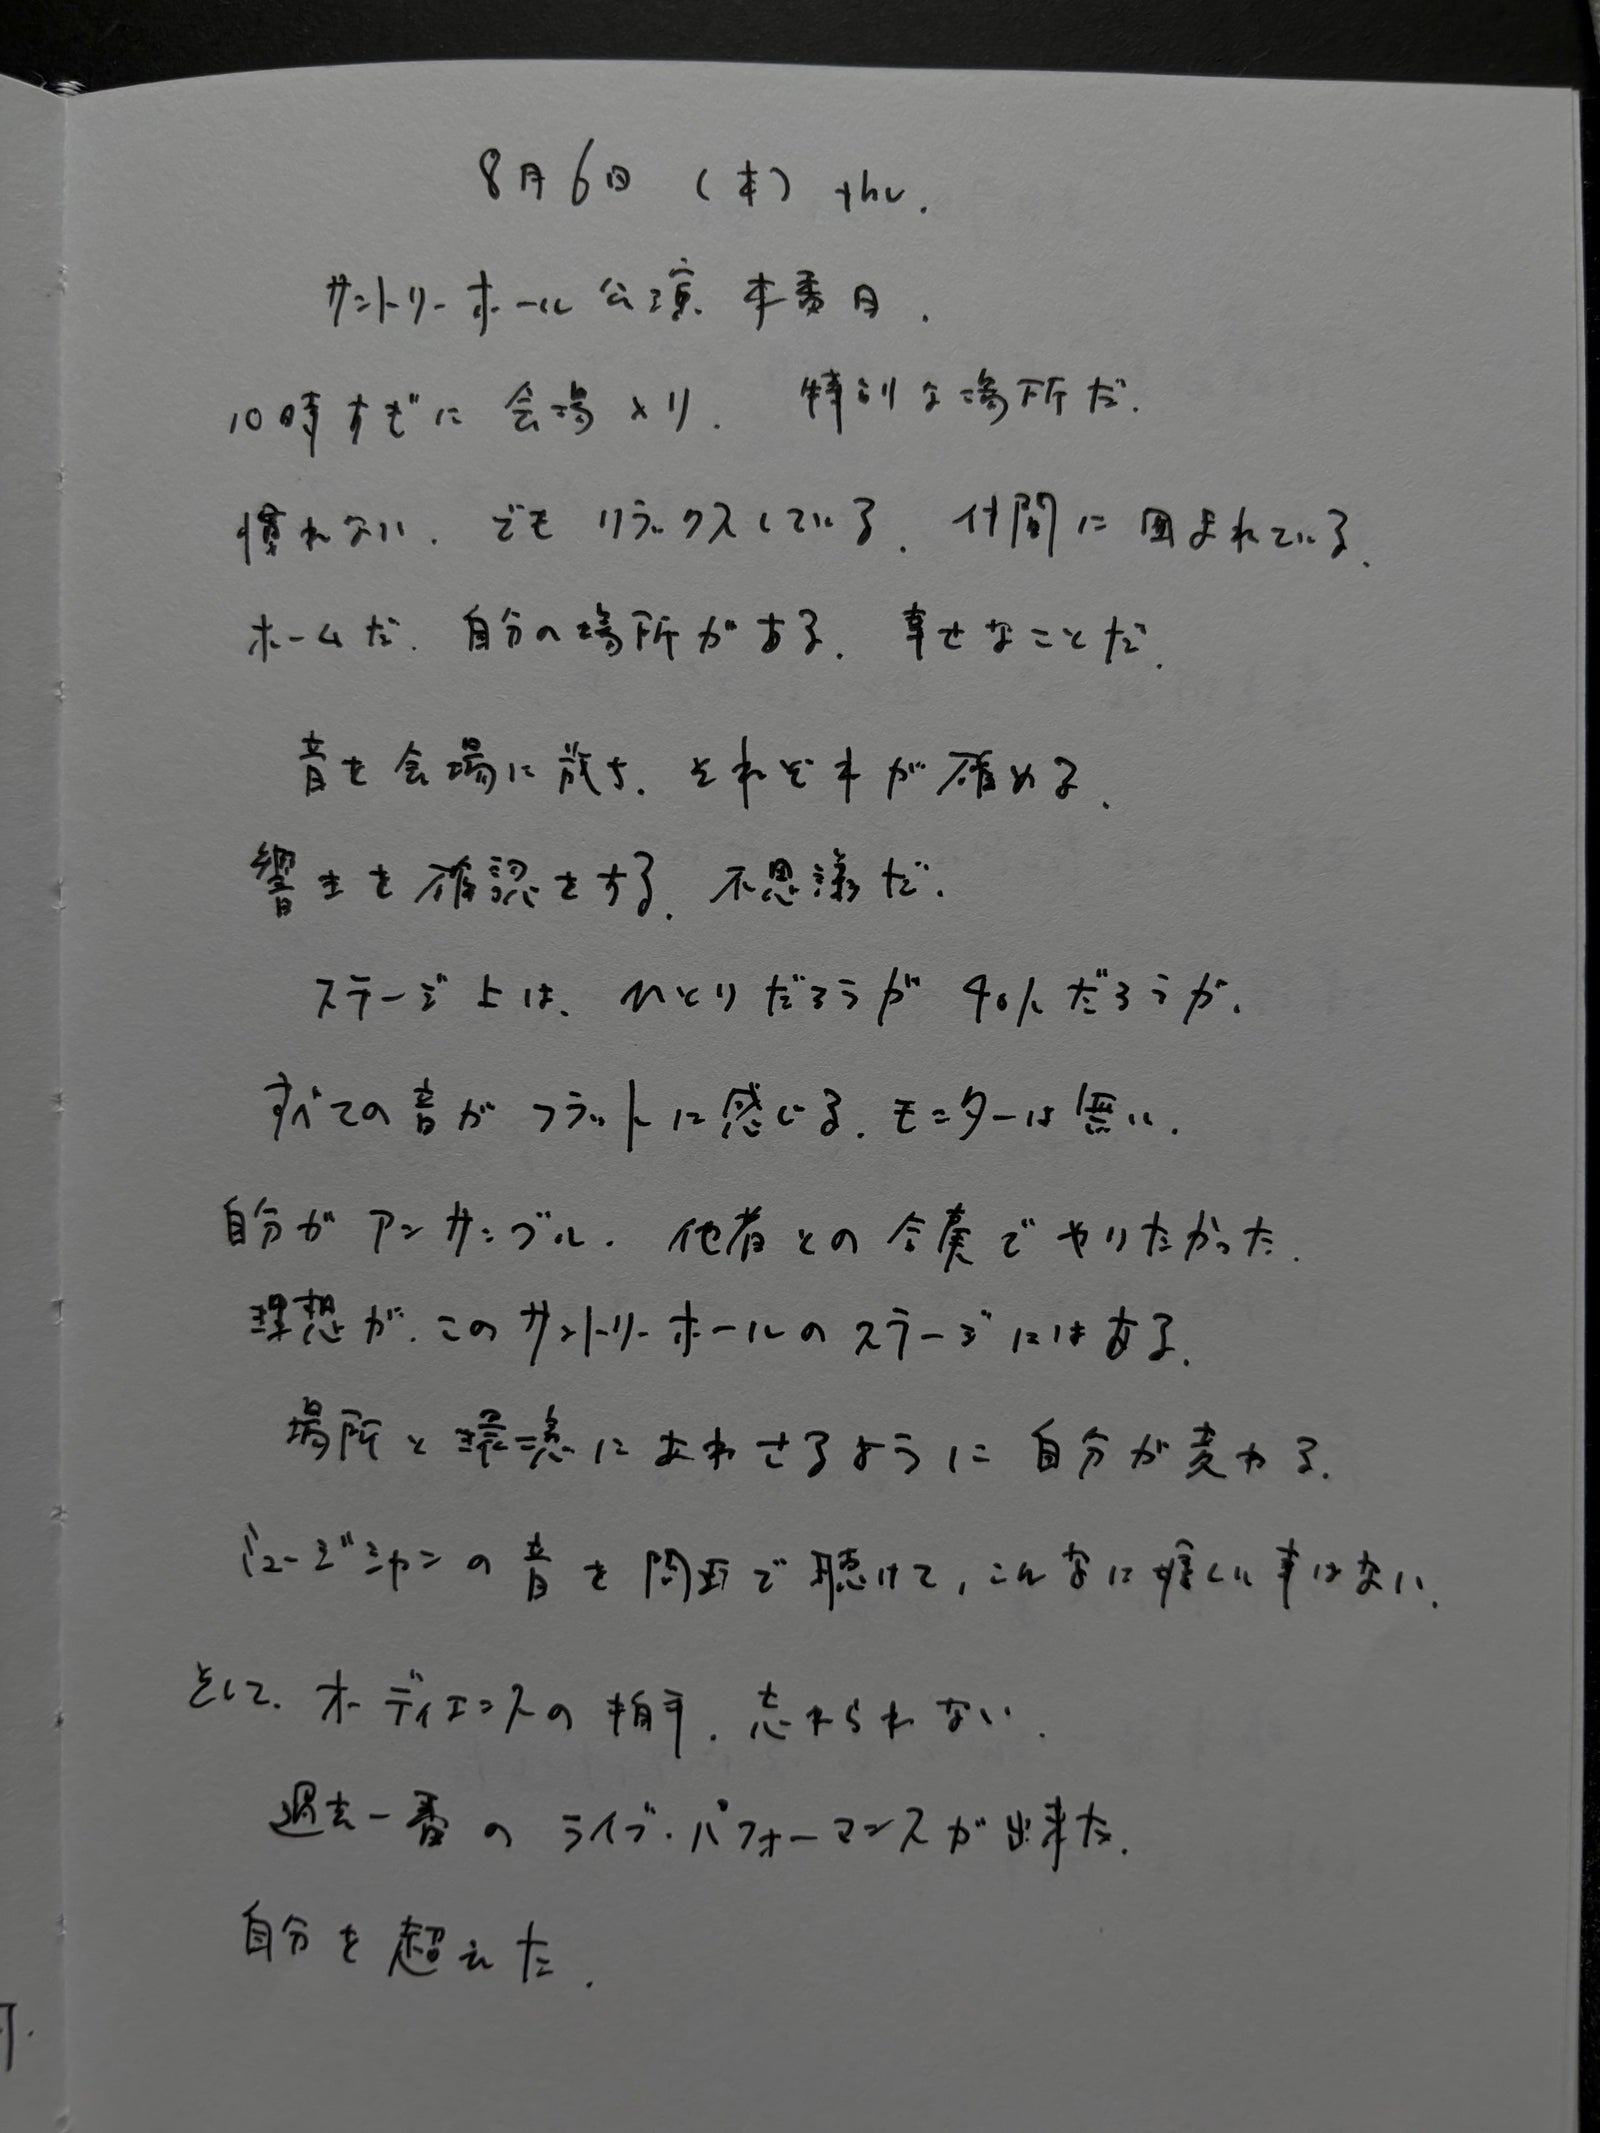 8月6日 (木) thu.
サントリーホール公演 本番日.
10時すぎに会場入り. 特別な場所だ.
慣れない. でもリラックスしている. 仲間に囲まれている.
ホームだ. 自分の場所がある. 幸せなことだ.
音を会場に放ち. それぞれが確める.
響きを確認をする. 不思議だ.
ステージ上は. ひとりだろうが 40人だろうが.
すべての音がフラットに感じる. モニターは無い.
自分がアンサンブル. 他者との合奏でやりたかった.
理想が. このサントリーホールのステージにはある.
場所と環境にあわせるように自分が変わる.
ミュージシャンの音を間近で聴けて, こんなに嬉しい事はない.
そして. オーディエンスの拍手. 忘れられない.
過去一番の ライブ・パフォーマンスが出来た.
自分を超えた.